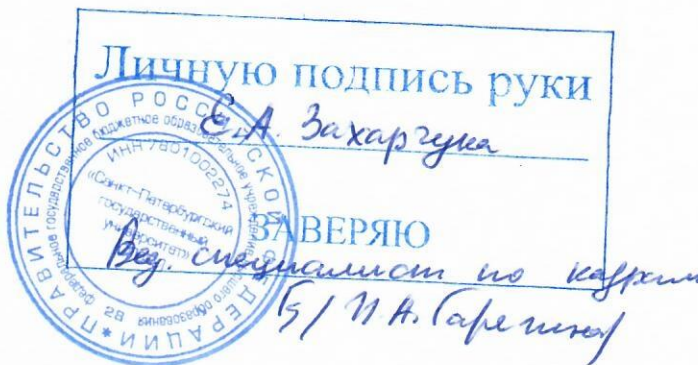 Личную подпись руки
Е.А. Захарчука
ЗАВЕРЯЮ
Вед. специалист по кадрам
И.А.
ПРАВИТЕЛЬСТВО РОССИЙСКОЙ ФЕДЕРАЦИИ *
федеральное государственное бюджетное образовательное учреждение высшего образования
ИНН 7801002274
«Санкт-Петербургский
государственный
университет»
28